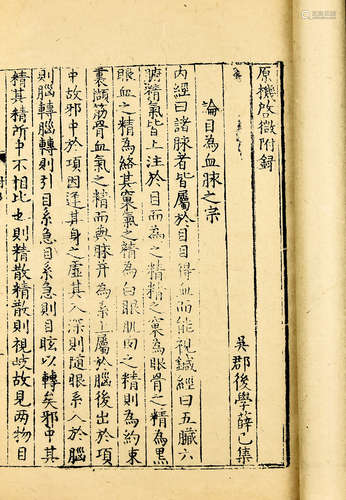 原機啓微附録
吳郡後學薛己集
論目為血脉之宗
内經曰諸脉者皆屬於目目得血而能視鍼經曰五臟六
腑精氣皆上注於目而為之精精之窠為眼骨之精為黒
眼血之精為絡其窠氣之精為白眼肌肉之精則為約束
裏擷筋骨血氣之精而與脉并為系上屬於腦後出於項
中故邪中於項因逢其身之虚其入深則随眼系入於腦
則腦轉腦轉則引目系急目系急則目眩以轉矣邪中其
精其精所中不相比也則精散精散則視歧故見两物目